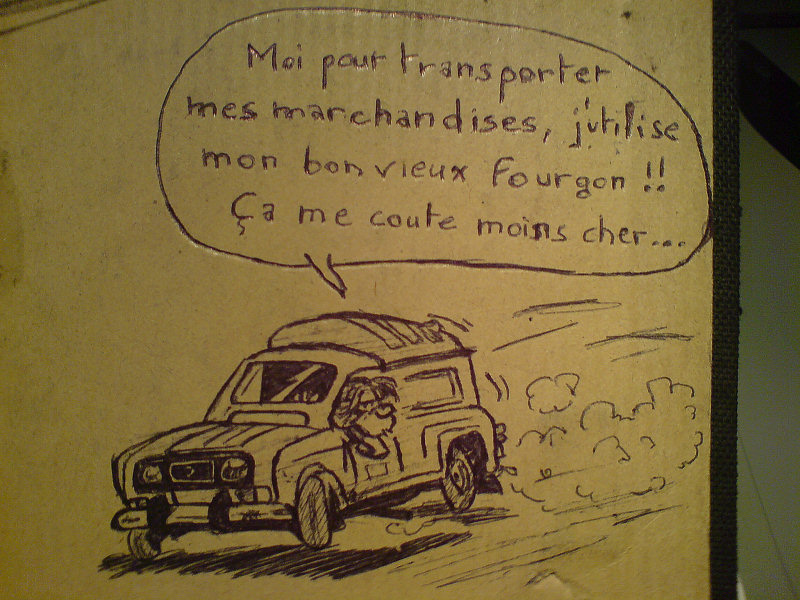 Moi pour transporter
mes marchandises, j'utilise
mon bon vieux fourgon !!
Ça me coute moins cher...